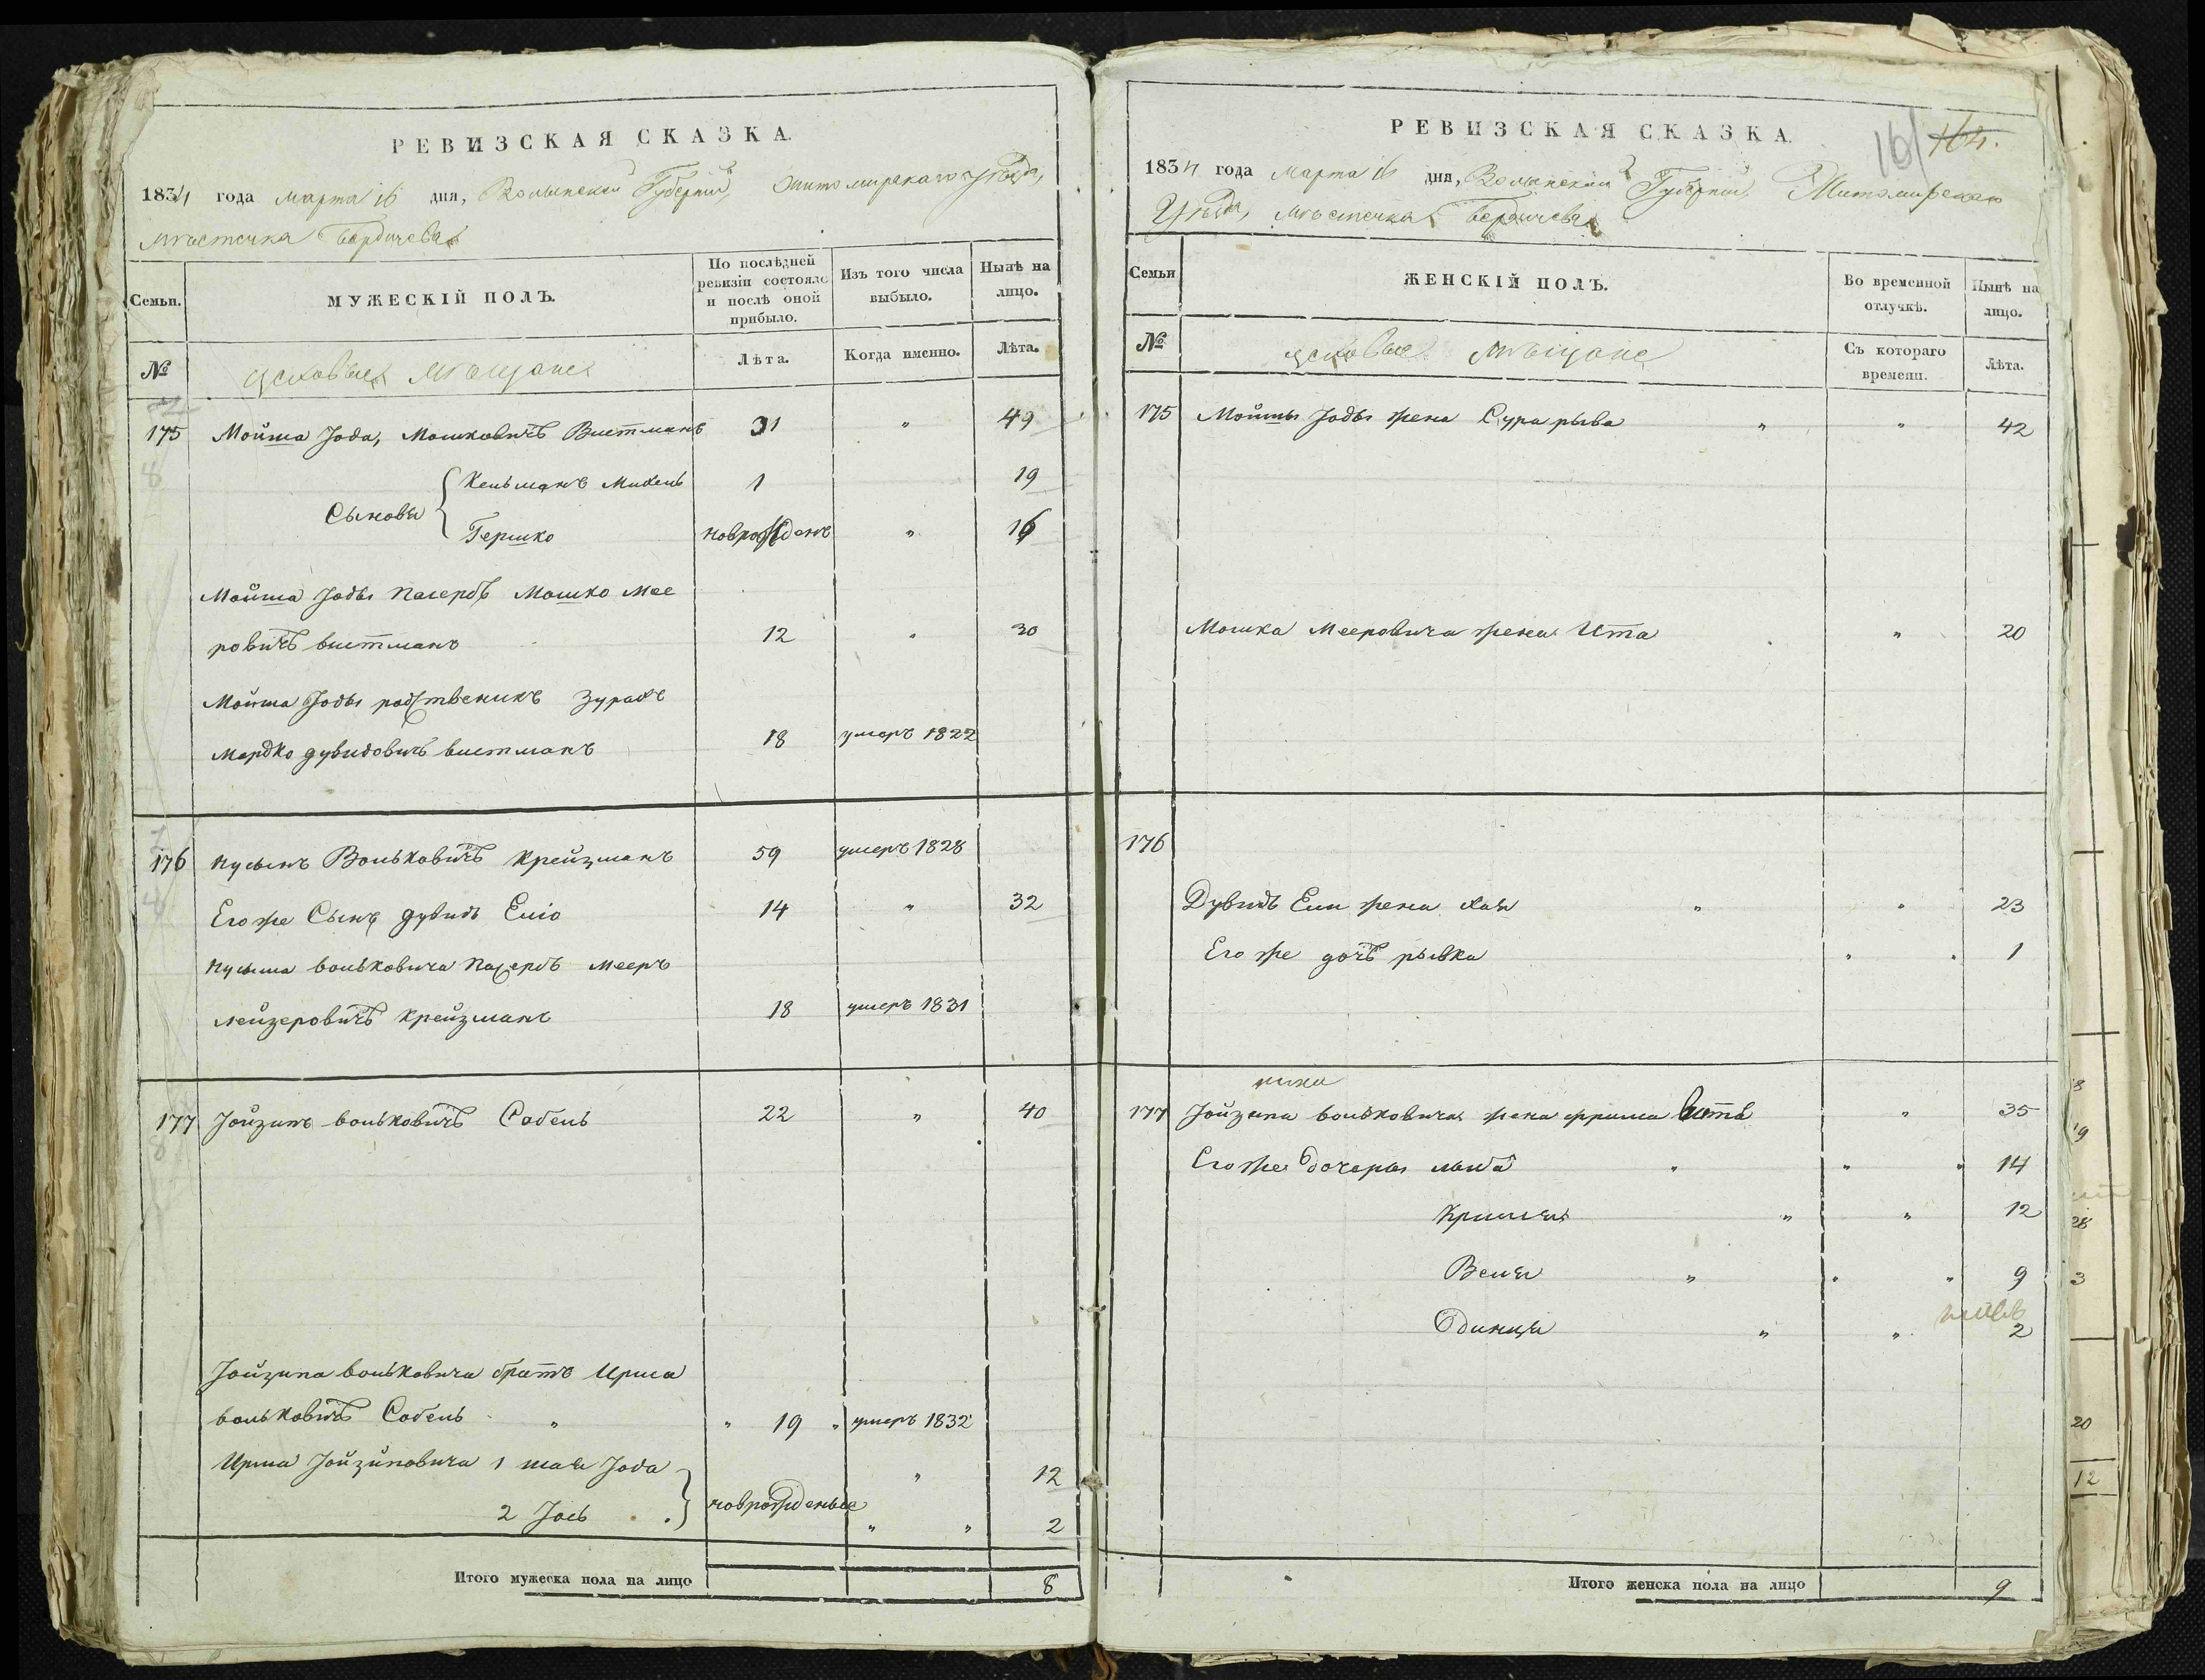 РЕВИЗСКАЯ СКАЗКА.
1834 года марта 16 дня, Волынской Губерніи, Житомирскаго уѣзда,
мѣстечка Бердичева
Семьи.
МУЖЕСКІЙ ПОЛЪ.
По послѣдней ревизіи состояло и послѣ оной прибыло.
Изъ того числа выбыло.
Нынѣ на лицо.
№
цеховые мѣщане
Лѣта.
Когда именно.
Лѣта.
175 Мойша Іода, Мошковичъ Вистманъ 31 " 49
Сыновья { Кельманъ Михель 1 19
Гершко новрожденъ " 16
Мойша Іоды пасербъ Мошко Мее
ровичъ вистманъ 12 " 30
Мойша Іоды родственикъ Зурахъ
Мордко дувидовичъ вистманъ 18 умеръ 1822
176 Нусынъ Вольковичъ Крейзманъ 59 умеръ 1828
Его же Сынъ дувидъ Еліо 14 " 32
Нусына вольковича пасербъ Мееръ
лейзеровичъ Крейзманъ 18 умеръ 1831
177 Іойзипъ вольковичъ Собель 22 " 40
Іойзипа вольковича братъ Ирша
вольковичъ Собель " " 19 " умеръ 1832
Ирша Іойзиповича 1 шая Іода } " 12
2 Іось . . новрожденые " " 2
Итого мужеска пола на лицо 8
РЕВИЗСКАЯ СКАЗКА.
161 164.
1834 года марта 16 дня, Волынской Губерніи, Житомирскаго
Уѣзда, мѣстечка Бердичева
Семьи
ЖЕНСКІЙ ПОЛЪ.
Во временной отлучкѣ.
Нынѣ на лицо.
№
цеховые мѣщане
Съ котораго времени.
Лѣта.
175 Мойшы Іоды жена Сура рыва " " 42
Мошка Мееровича жена Ита " 20
176
Дувидъ Ели жена хая " " 23
Его же дочъ рывка " " 1
177 Іойзипа вольковича жена фрима " 35
Его же дочеры " " " 14
" " 12
Бейля " " " 9
Одинця " " 2
Итого женска пола на лицо 9